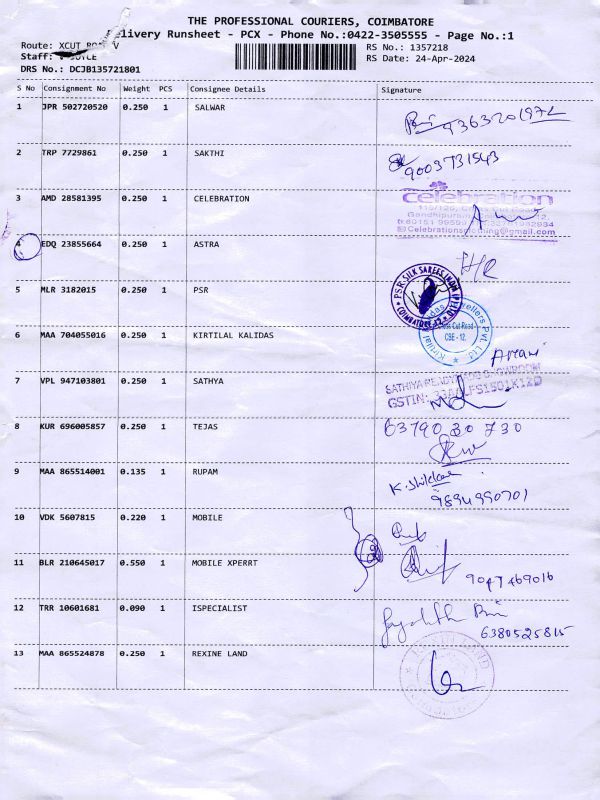 THE PROFESSIONAL COURIERS, COIMBATORE
Delivery Runsheet - PCX - Phone No.:0422-3505555 - Page No.:1
Route: XCUT
RS No.: 1357218
Staff:
RS Date: 24-Apr-2024
DRS No.: DCJB135721801
S No Consignment No Weight PCS Consignee Details Signature
1 JPR 502720520 0.250 1 SALWAR
2 TRP 7729861 0.250 1 SAKTHI 9003731543
3 AMD 28581395 0.250 1 CELEBRATION
celebration
4 EDQ 23855664 0.250 1 ASTRA
5 MLR 3182015 0.250 1 PSR
PSR SILK SAREES
6 MAA 704055016 0.250 1 KIRTILAL KALIDAS
Cross Cut Road
CBE - 12.
7 VPL 947103801 0.250 1 SATHYA
GSTIN:
8 KUR 696005857 0.250 1 TEJAS 63790 30 730
9 MAA 865514001 0.135 1 RUPAM
9894990701
10 VDK 5607815 0.220 1 MOBILE
11 BLR 210645017 0.550 1 MOBILE XPERRT
9047469016
12 TRR 10601681 0.090 1 ISPECIALIST
6380525815
13 MAA 865524878 0.250 1 REXINE LAND